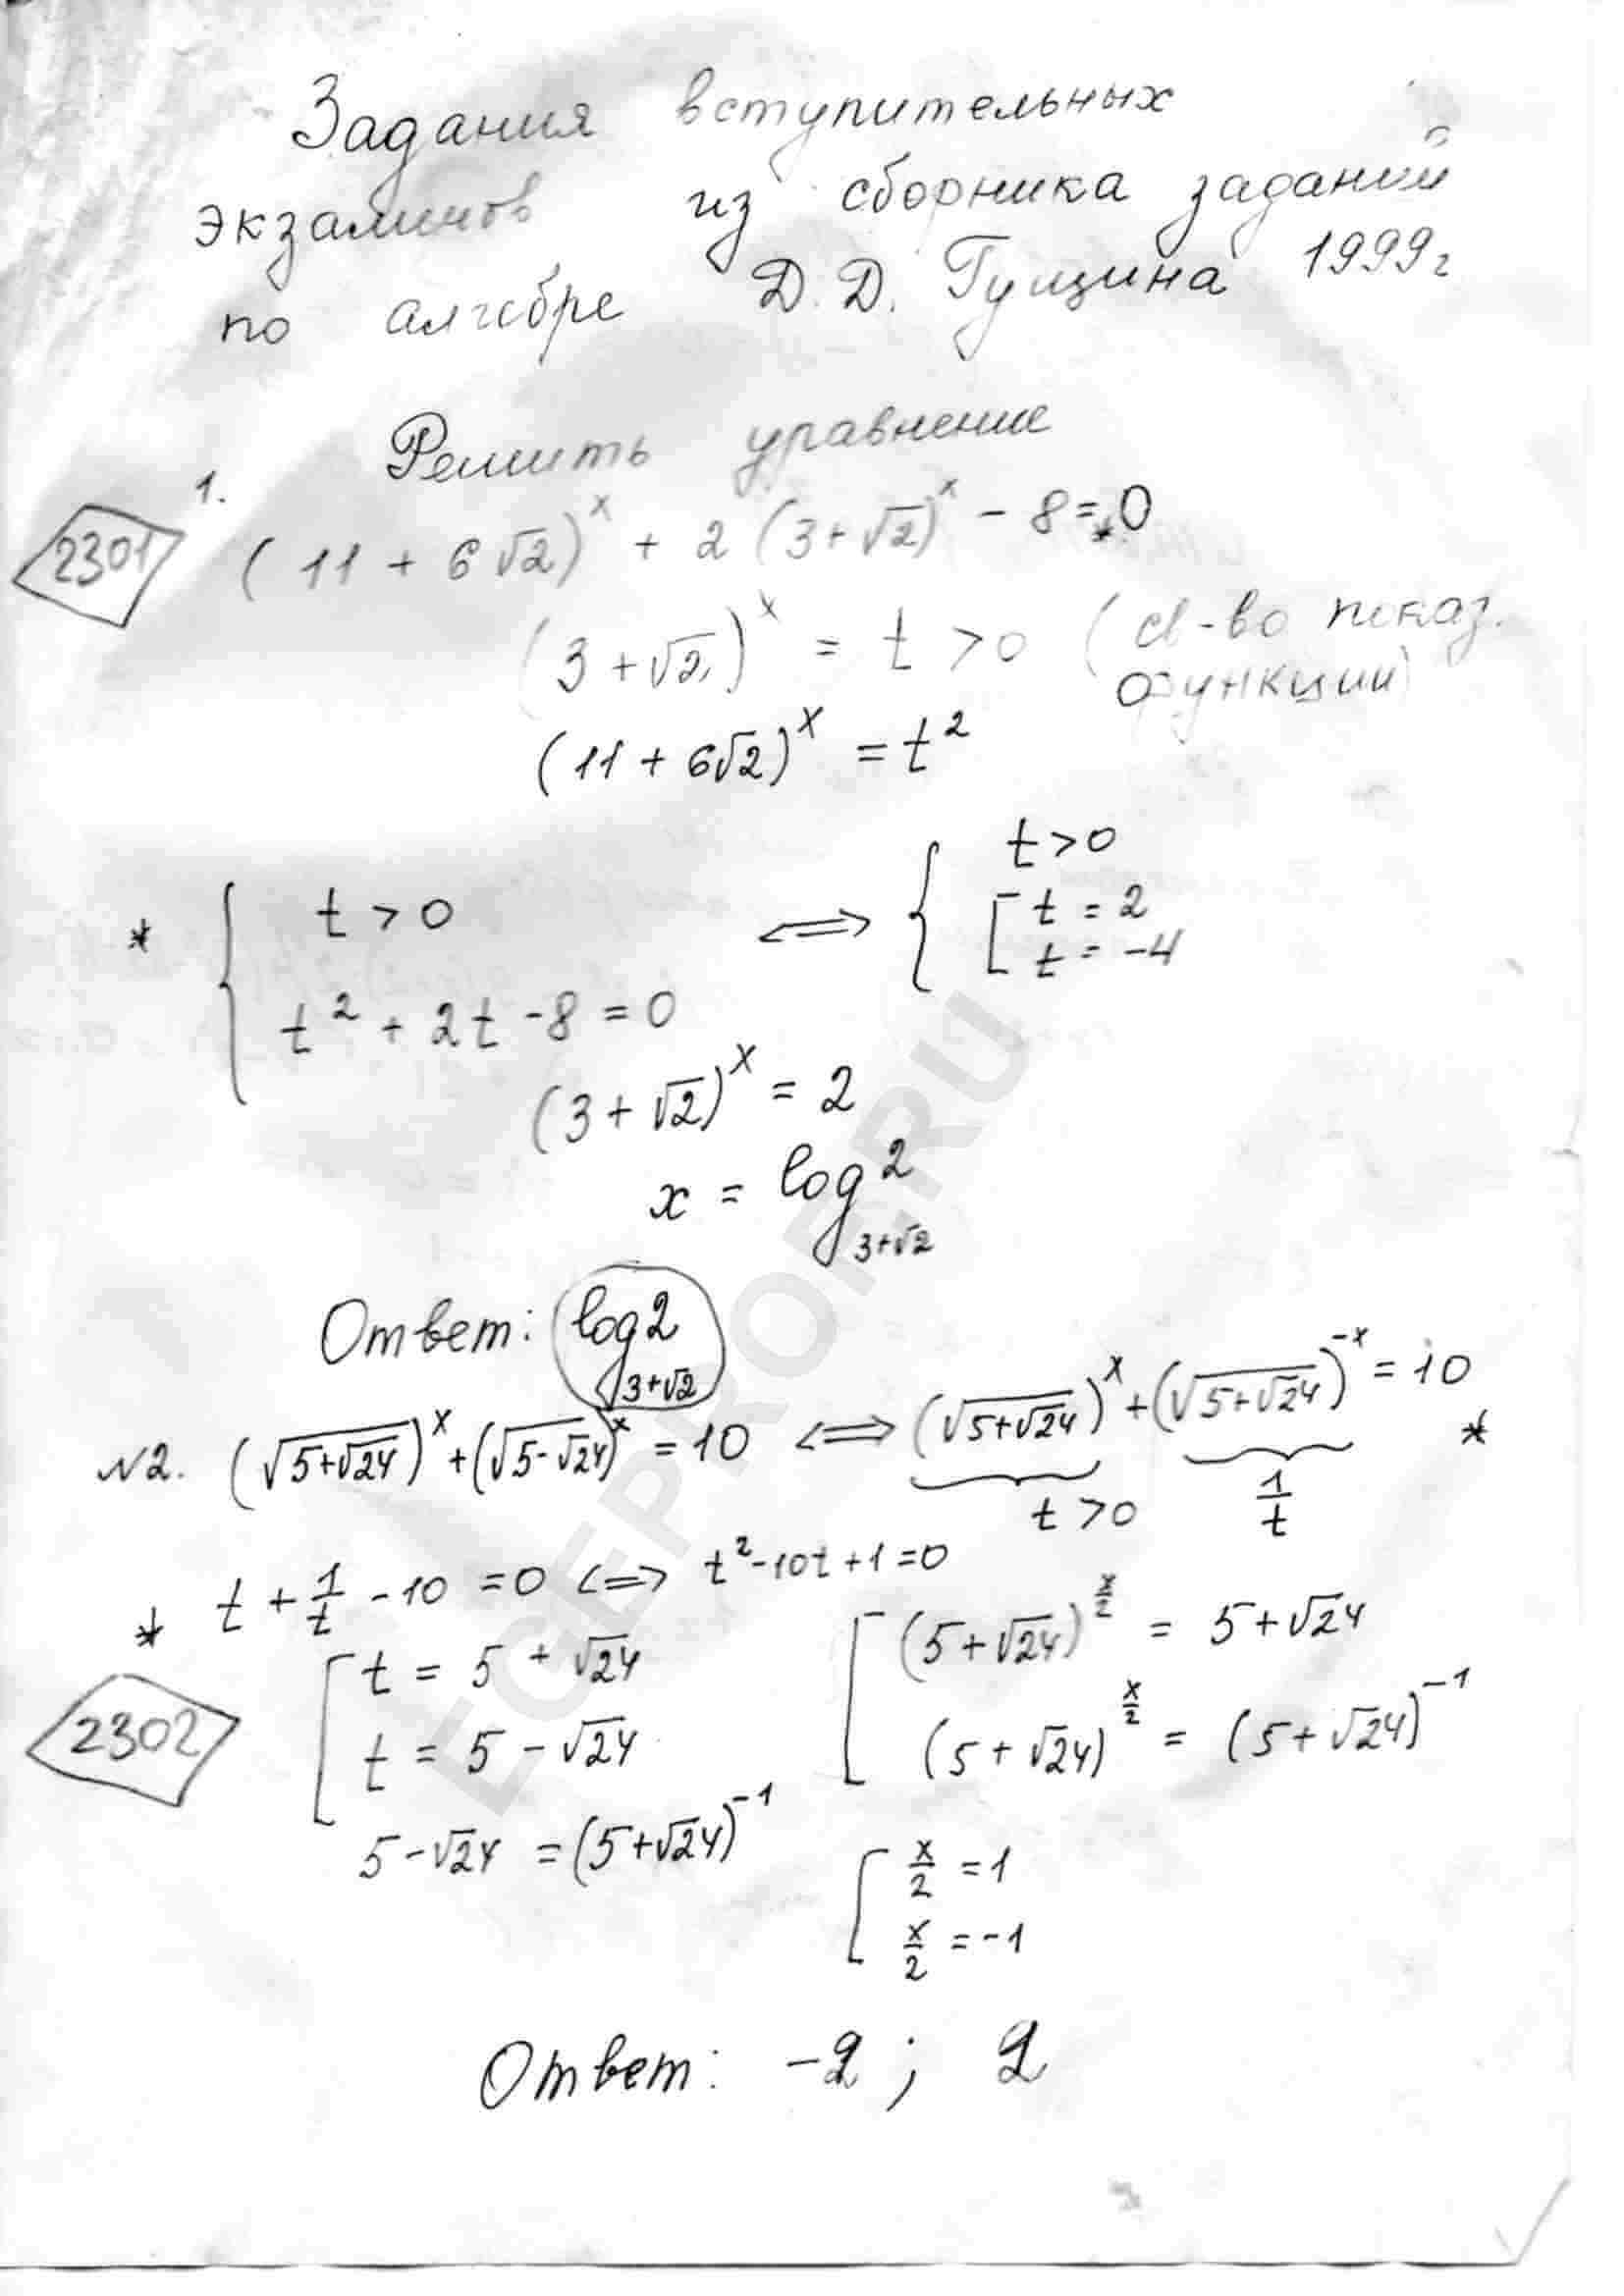 Задания вступительных
экзаминов из сборника заданий
по алгебре Д.Д. Гущина 1999г
Решить уравнение
1.
2301
(11 + 6√2)^x + 2(3+√2)^x - 8 = 0
*
(3+√2)^x = t > 0 (св-во показ.
функции)
(11 + 6√2)^x = t^2
* { t > 0 ; t^2 + 2t - 8 = 0 <=> { t > 0 ; [ t = 2 ; t = -4
(3 + √2)^x = 2
x = log_{3+√2} 2
Ответ: log_{3+√2} 2
N2. (√(5+√24))^x + (√(5-√24))^x = 10 <=> (√(5+√24))^x + (√(5+√24))^{-x} = 10 *
t > 0 1/t
* t + 1/t - 10 = 0 <=> t^2 - 10t + 1 = 0
2302
[ t = 5 + √24 [ (5+√24)^{x/2} = 5+√24
t = 5 - √24 (5+√24)^{x/2} = (5+√24)^{-1}
5-√24 = (5+√24)^{-1}
[ x/2 = 1
x/2 = -1
Ответ: -2; 2
EGEPROF.RU